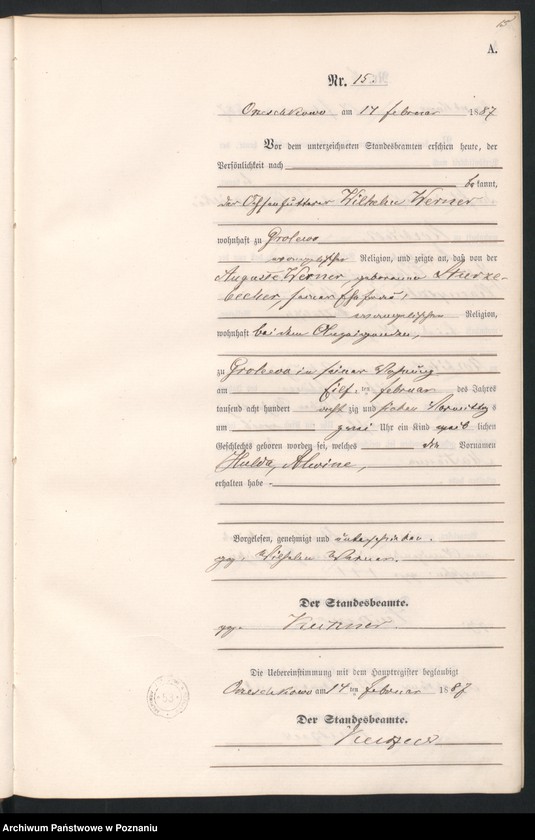 A.
Nr. 15.
am 14 Februar 1887
Vor dem unterzeichneten Standesbeamten erschien heute, der
Persönlichkeit nach
bekannt,
der Ochsenfütterer Wilhelm Werner
wohnhaft zu
evangelischer Religion, und zeigte an, daß von der
Auguste Werner, geborenen Sturze-
becher, seiner Ehefrau,
evangelischen Religion,
wohnhaft bei dem Anzeigenden,
zu in seiner Wohnung
am Eilf ten Februar des Jahres
tausend acht hundert acht zig und sieben Vormittags
um zwei Uhr ein Kind weib lichen
Geschlechts geboren worden sei, welches die Vornamen
Hulda, Alwine,
erhalten habe
Vorgelesen, genehmigt und unterschrieben.
gez. Wilhelm Werner.
Der Standesbeamte.
gez.
Die Uebereinstimmung mit dem Hauptregister beglaubigt
am 14 ten Februar 1887
Der Standesbeamte.
Archiwum Państwowe w Poznaniu